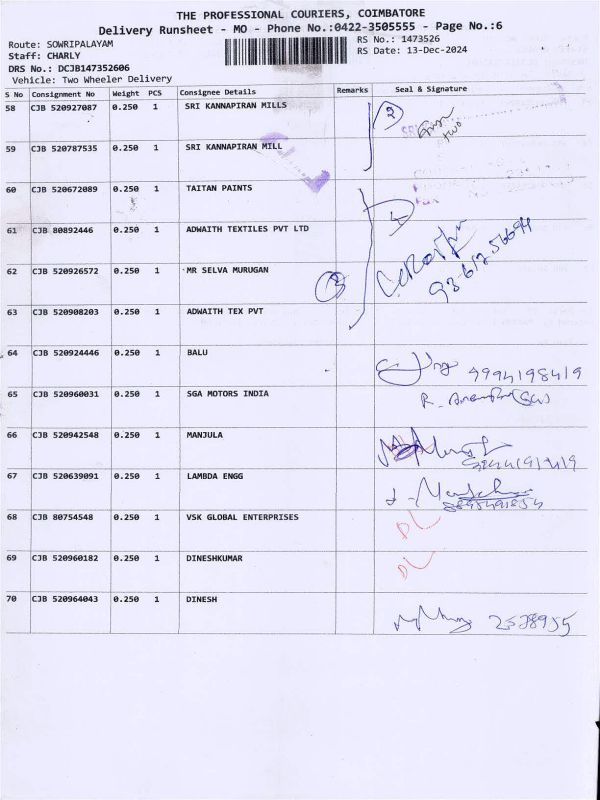 THE PROFESSIONAL COURIERS, COIMBATORE
Delivery Runsheet - MO - Phone No.:0422-3505555 - Page No.:6
Route: SOWRIPALAYAM
RS No.: 1473526
Staff: CHARLY
RS Date: 13-Dec-2024
DRS No.: DCJB147352606
Vehicle: Two Wheeler Delivery
S No Consignment No Weight PCS Consignee Details Remarks Seal & Signature
58 CJB 520927087 0.250 1 SRI KANNAPIRAN MILLS 2
two
59 CJB 520787535 0.250 1 SRI KANNAPIRAN MILL
60 CJB 520672089 0.250 1 TAITAN PAINTS
61 CJB 80892446 0.250 1 ADWAITH TEXTILES PVT LTD
62 CJB 520926572 0.250 1 MR SELVA MURUGAN
63 CJB 520908203 0.250 1 ADWAITH TEX PVT
64 CJB 520924446 0.250 1 BALU 9994198419
65 CJB 520960031 0.250 1 SGA MOTORS INDIA R.
66 CJB 520942548 0.250 1 MANJULA
67 CJB 520639091 0.250 1 LAMBDA ENGG
68 CJB 80754548 0.250 1 VSK GLOBAL ENTERPRISES DL
69 CJB 520960182 0.250 1 DINESHKUMAR DL
70 CJB 520964043 0.250 1 DINESH